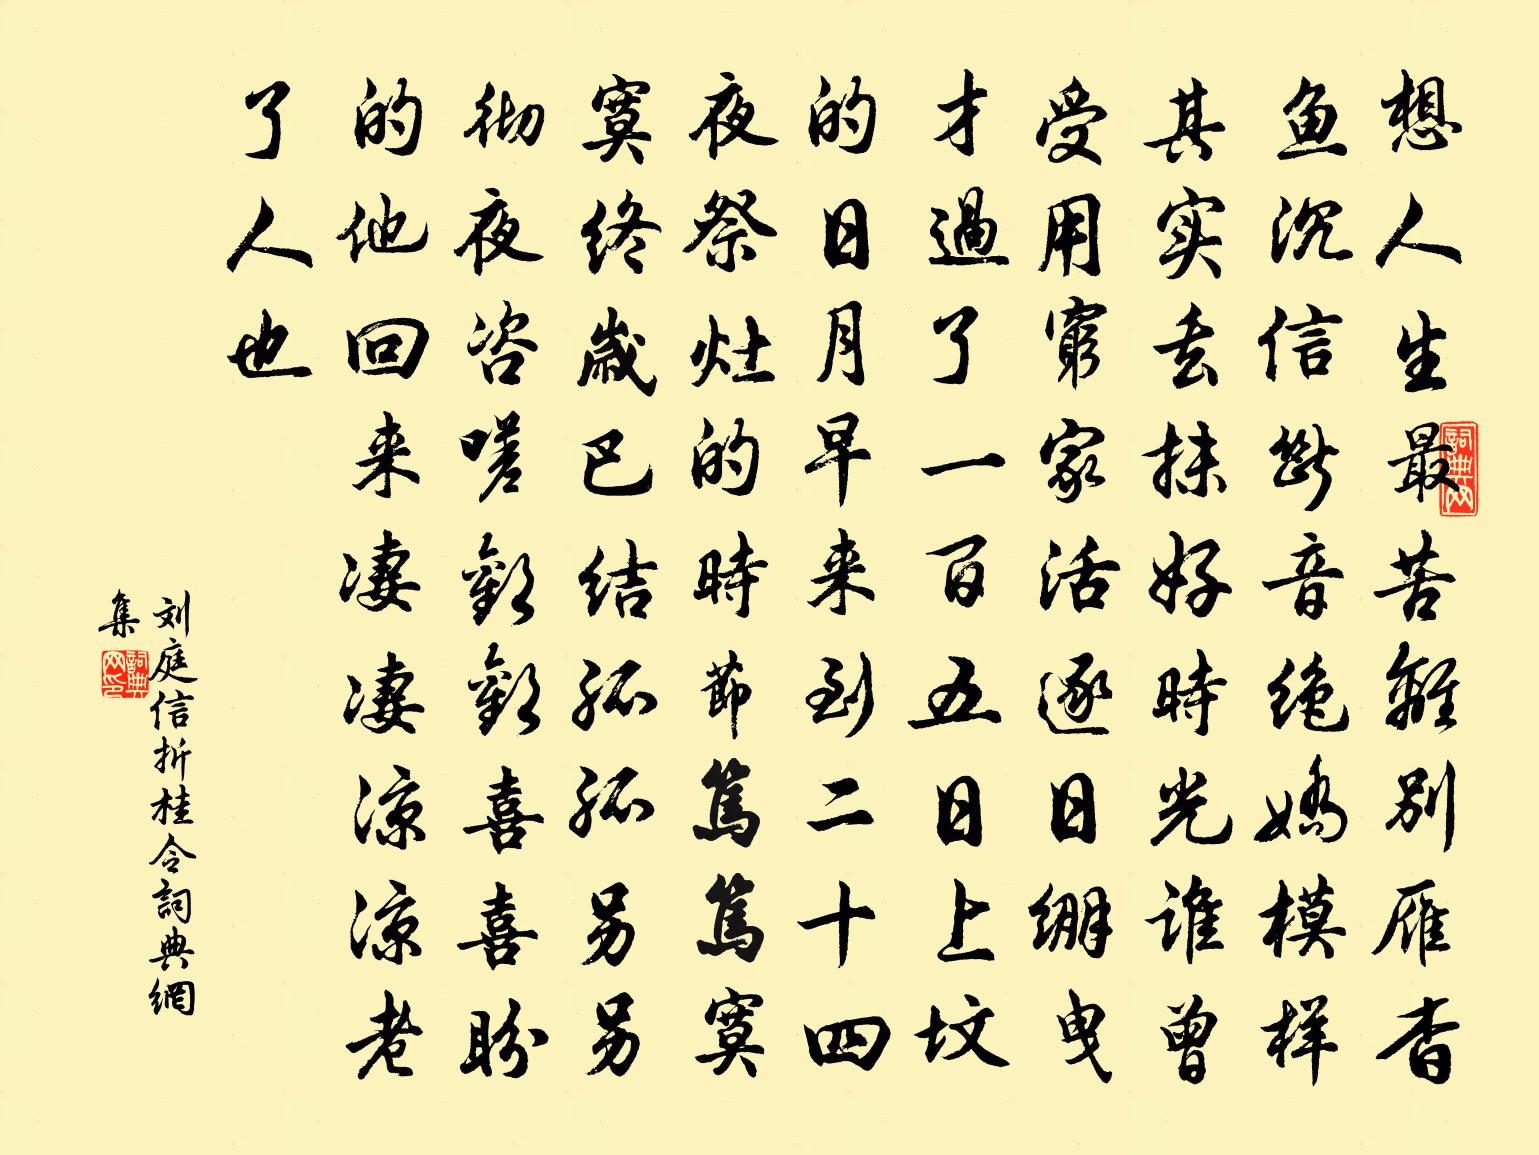 想人生最苦離别雁杳
鱼沉信断音绝嬌模样
其实丢抹好時光谁曾
受用窮家活逐日绷曳
才過了一百五日上坟
的日月早来到二十四
夜祭灶的時節篤篤寞
寞终歲巴结孤孤另另
彻夜咨嗟歡歡喜喜盼
的他回来凄凄凉凉老
了人也
刘庭信折桂令詞典網
集
詞典网
詞典网印